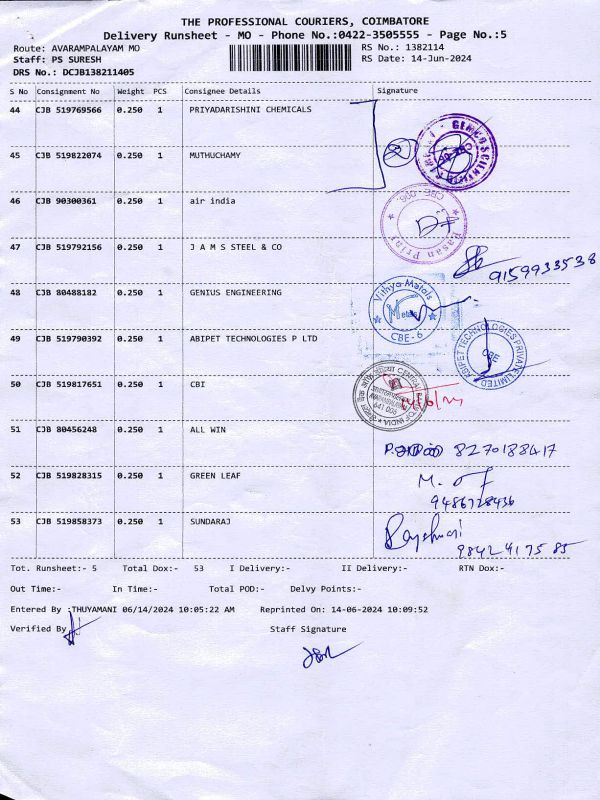 THE PROFESSIONAL COURIERS, COIMBATORE
Delivery Runsheet - MO - Phone No.:0422-3505555 - Page No.:5
Route: AVARAMPALAYAM MO RS No.: 1382114
Staff: PS SURESH RS Date: 14-Jun-2024
DRS No.: DCJB138211405
S No Consignment No Weight PCS Consignee Details Signature
44 CJB 519769566 0.250 1 PRIYADARISHINI CHEMICALS
45 CJB 519822074 0.250 1 MUTHUCHAMY
46 CJB 90300361 0.250 1 air india
CBE-006.
47 CJB 519792156 0.250 1 J A M S STEEL & CO
9159933538
48 CJB 80488182 0.250 1 GENIUS ENGINEERING
Vithya Metals
CBE - 6
49 CJB 519790392 0.250 1 ABIPET TECHNOLOGIES P LTD
ABIPET TECHNOLOGIES PRIVATE LIMITED
CBE
50 CJB 519817651 0.250 1 CBI
51 CJB 80456248 0.250 1 ALL WIN
8270188417
52 CJB 519828315 0.250 1 GREEN LEAF
9486728436
53 CJB 519858373 0.250 1 SUNDARAJ
98424 17585
Tot. Runsheet:- 5 Total Dox:- 53 I Delivery:- II Delivery:- RTN Dox:-
Out Time:- In Time:- Total POD:- Delvy Points:-
Entered By :THUYAMANI 06/14/2024 10:05:22 AM Reprinted On: 14-06-2024 10:09:52
Verified By Staff Signature